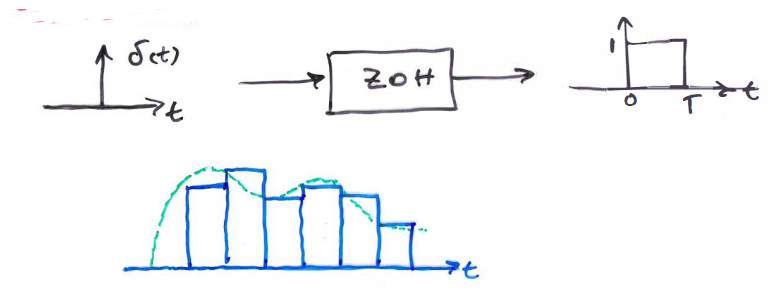 δ(t)
t
ZOH
1
0
T
t
t